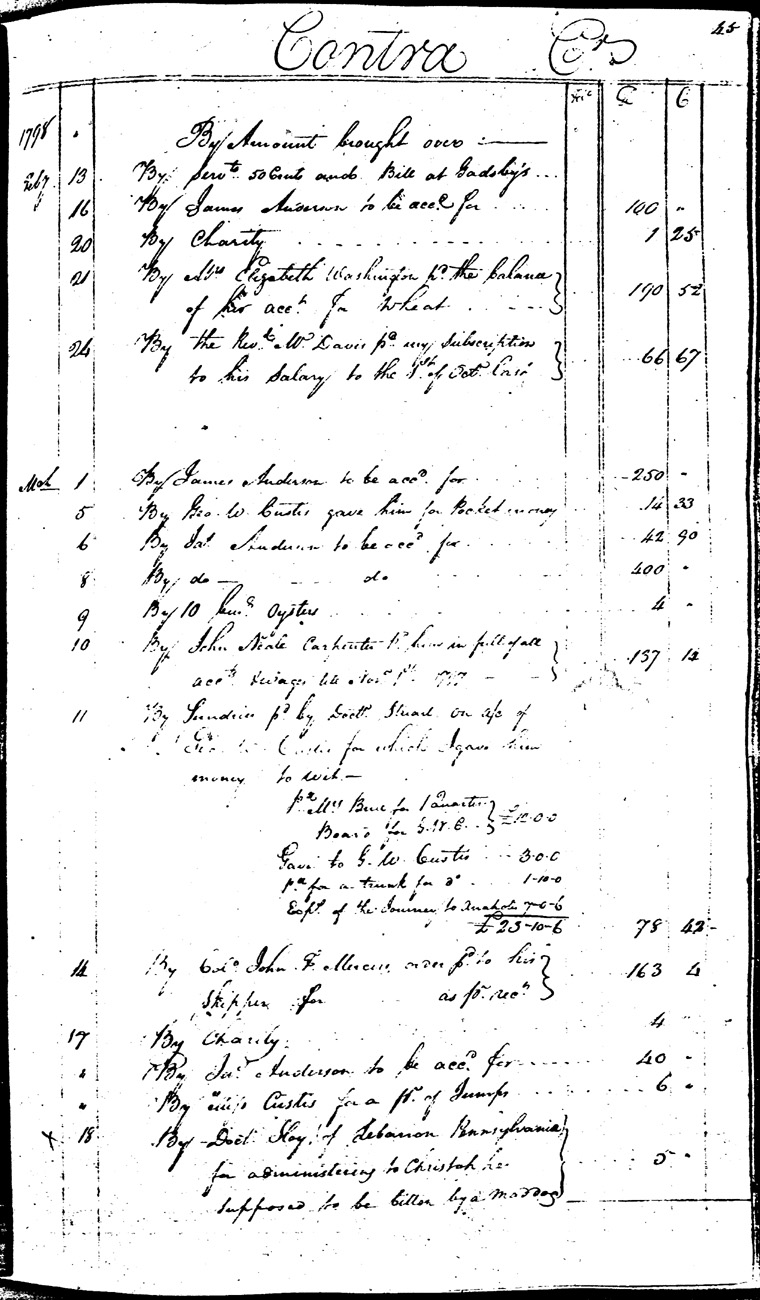 45
Contra Crs
Dic C C
1798 " By Amount brought over :
Feby 13 By Servts 50 Cents and Bill at Gadsby's ...
16 By James Anderson to be accd for .... 100 "
20 By Charity .......... 1 25
21 By Mrs Elizabeth Washington pd the balance
of her acct for Wheat .... 190 52
24 By the Revd Mr Davis pd my Subscription
to his Salary to the 1st of Octr Last 66 67
Mch 1 By James Anderson to be accd for .... 250 "
5 By Geo. W. Custis gave him for Pocket money 14 33
6 By Jas Anderson to be accd for .... 42 90
8 By do — do .... 400 "
9 By 10 Oysters .... 4 "
10 By John Neale Carpenter pd him in full of all
acct wages till Novr 1st 1797 137 12
11 By Sundries pd by Doctr Stuart on a/c of
Custis for which I gave him
money to wit—
pd Mrs for 1 Quarter
Board for G. W. C. .. £12-0-0
Gave to G. W. Custis ... 3-0-0
pd for a trunk for do . 1-10-0
Exps of the Journey to 7-0-6
£23-10-6 78 42
14 By Colo John F. Mercer pd to his
Skipper for as pr rect 163 4
17 By Charity. 4 "
" By Jas Anderson to be accd for .... 40 "
" By Miss Custis for a pr of Jumps .... 6 "
x 18 By Doctr of Lebanon Pennsylvania
for administering to Christoph he
supposed to be bitten by a maddog 5 "